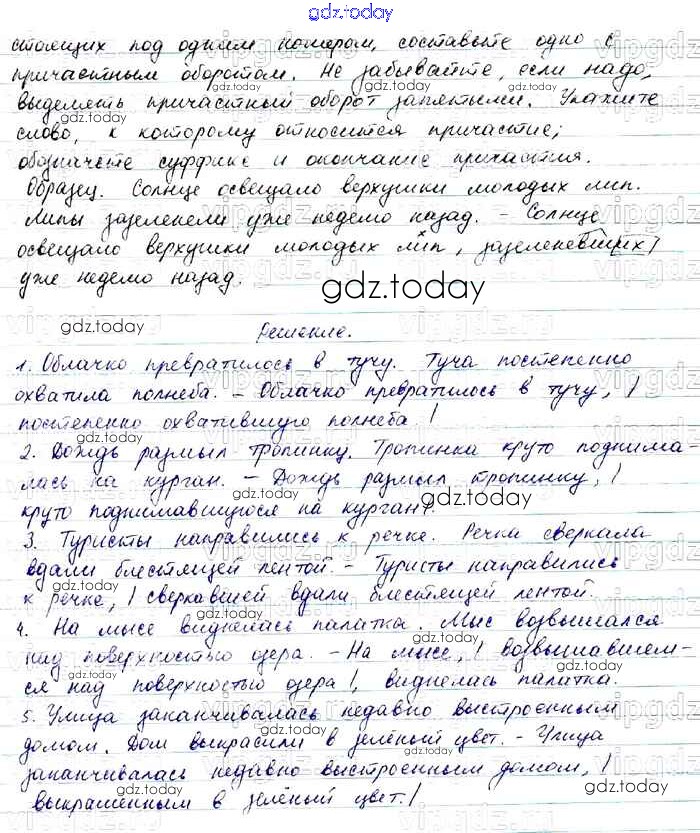 gdz.today
стоящих под одним номером, составьте одно с
причастным оборотом. Не забывайте, если надо,
выделять причастный оборот запятыми. Укажите
gdz.today
слово, к которому относится причастие;
обозначьте суффикс и окончание причастия.
gdz.today
Образец. Солнце освещало верхушки молодых лип.
Липы зазеленели уже неделю назад. - Солнце
gdz.today
освещало верхушки молодых лип, зазеленевших /
уже неделю назад.
gdz.today
gdz.today
Решение.
1. Облачко превратилось в тучу. Туча постепенно
охватила полнеба. - Облачко превратилось в тучу, /
gdz.today
постепенно охватившую полнеба. /
gdz.today
2. Дождь размыл тропинку. Тропинка круто поднима-
лась на курган. - Дождь размыл тропинку, /
gdz.today
круто поднимавшуюся на курган /.
3. Туристы направились к речке. Речка сверкала
gdz.today
вдали блестящей лентой. - Туристы направились
к речке, / сверкавшей вдали блестящей лентой.
gdz.today
4. На мысе виднелась палатка. Мыс возвышался
gdz.today
над поверхностью озера. - На мысе, / возвышавшем-
ся над поверхностью озера /, виднелась палатка.
gdz.today
5. Улица заканчивалась недавно выстроенным
gdz.today
домом. Дом выкрасили в зелёный цвет. - Улица
gdz.today
заканчивалась недавно выстроенным домом, /
выкрашенным в зелёный цвет. /
gdz.today